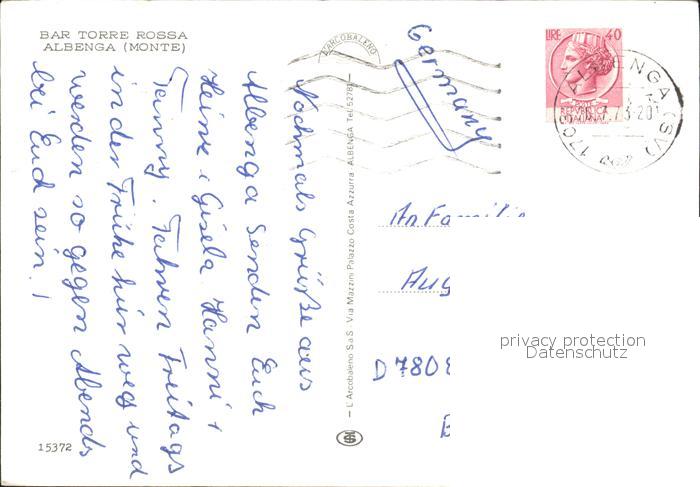 BAR TORRE ROSSA
ALBENGA (MONTE)
Nochmals Grüße aus
Albenga Senden Euch
Heinz i Gisela. Hanni +
Fanny. Fahren Freitags
in der Frühe hier weg und
werden so gegen Abends
bei Euch sein.!
15372
L'Arcobaleno S.a.S. Via Mazzini Palazzo Costa Azzurra - ALBENGA Tel. 52783
Germany
LIRE 40
ALBENGA (SV)
An Famili
Aug
D 780
privacy protection
Datenschutz